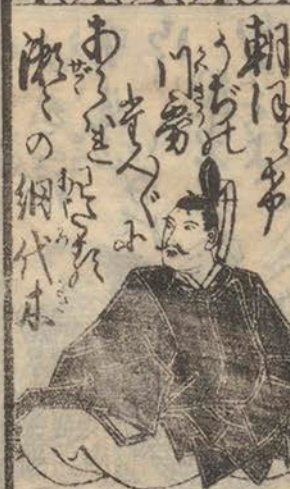 朝ほらけ
うぢの
川霧
たえ〴〵に
あらはれ
わたる
瀬々の網代木